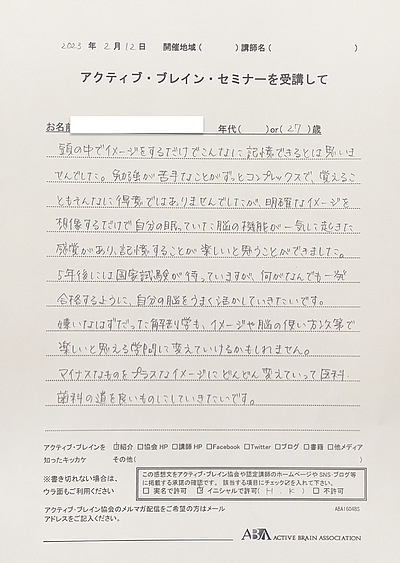 2023 年 2 月 12 日 開催地域 ( ) 講師名 ( )
アクティブ・ブレイン・セミナーを受講して
お名前 年代( )or( 27 )歳
頭の中でイメージをするだけでこんなに記憶できるとは思いま
せんでした。勉強が苦手なことがずっとコンプレックスで、覚えるこ
ともそんなに得意ではありませんでしたが、明確なイメージを
想像するだけで自分の眠っていた脳の機能が一気に起きた
感覚があり、記憶することが楽しいと思うことができました。
5年後には国家試験が待っていますが、何がなんでも一発
合格するように、自分の脳をうまく活かしていきたいです。
嫌いなはずだった解剖学も、イメージや脳の使い方次第で
楽しいと思える学問に変えていけるかもしれません。
マイナスなものをプラスなイメージにどんどん変えていって医科・
歯科の道を良いものにしていきたいです。
アクティブ・ブレインを ☑紹介 □協会 HP □講師 HP □Facebook □Twitter □ブログ □書籍 □他メディア
知ったキッカケ その他( )
※書き切れない場合は、
ウラ面もご利用ください
この感想文をアクティブ・ブレイン協会や認定講師のホームページや SNS・ブログ等
に掲載する承諾の確認です。 該当する項目にチェック☑を入れて下さい。
□ 実名で許可 ☑ イニシャルで許可( H . K ) □ 不許可
アクティブ・ブレイン協会のメルマガ配信をご希望の方はメール
アドレスをご記入ください。
ABA160485
ABA ACTIVE BRAIN ASSOCIATION